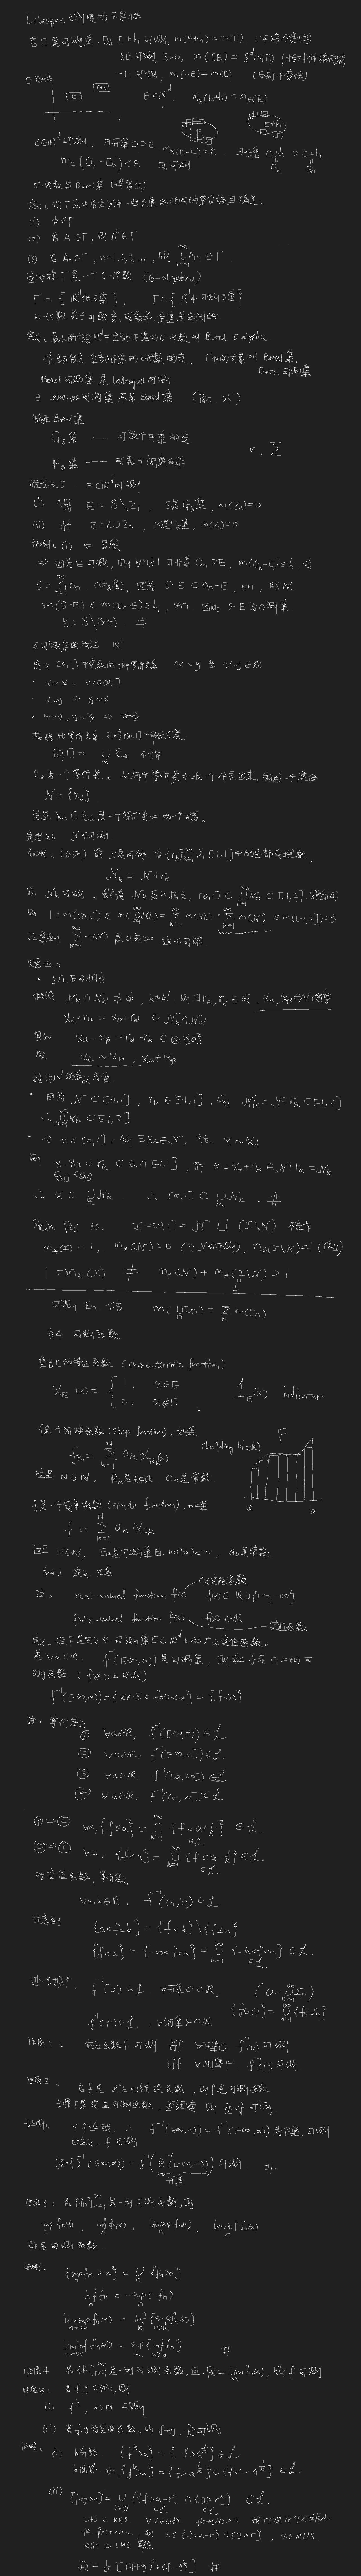 Lebesgue 测度的不变性
若E是可测集, 则 E+h 可测, m(E+h)=m(E) (平移不变性)
δE 可测, δ>0, m(δE)=δ^d m(E) (相对伸缩)
-E 可测, m(-E)=m(E) (反射不变性)
E 矩体
E
E+h
E⊂ℝ^d, m_*(E+h)=m_*(E)
E
E+h
E⊂ℝ^d 可测, ∃开集 O⊃E m_*(O-E)<ε ∃开集 O+h ⊃ E+h
O_h E_h
m_*(O_h-E_h)<ε E_h 可测
σ-代数与 Borel 集
定义: 设Γ是由集合X中一些子集所构成的集合族且满足:
(i) ∅∈Γ
(2) 若 A∈Γ, 则 A^c∈Γ
(3) 若 A_n∈Γ, n=1,2,3,..., 则 ∪_{n=1}^∞ A_n ∈Γ
这时称Γ是一个σ-代数 (σ-algebra)
Γ={ℝ^d的子集}, Γ={ℝ^d中可测子集}
σ-代数关于可数交, 可数并, 余集是封闭的
定义: 最小的包含ℝ^d中全部开集的σ-代数叫 Borel σ-algebra
全部包含全部开集的σ代数的交. Γ中的元素叫 Borel 集,
Borel 可测集
Borel 可测集是 Lebesgue 可测
∃ Lebesgue 可测集, 不是 Borel 集 (P35 35)
特殊 Borel 集
G_δ集 —— 可数个开集的交
F_σ集 —— 可数个闭集的并
σ, Σ
推论3.5 E⊂ℝ^d 可测
(i) iff E=S\Z_1, S是G_δ集, m(Z_1)=0
(ii) iff E=K∪Z_2, K是F_σ集, m(Z_2)=0
证明: (i) ⇐ 显然
⇒ 因为E可测, 则 ∀n≥1 ∃开集 O_n⊃E, m(O_n-E)≤1/n 令
S=∩_{n=1}^∞ O_n (G_δ集). 因为 S-E⊂O_n-E, ∀n, 所以
m(S-E)≤m(O_n-E)≤1/n, ∀n 因此 S-E为0测集
E=S\(S-E) #
不可测集的构造 ℝ^1
定义 [0,1] 中实数的一种等价关系 x~y 当 x-y∈Q
· x~x, ∀x∈[0,1]
· x~y ⇒ y~x
· x~y, y~z ⇒ x~z
根据此等价关系可将[0,1]中的点分类
[0,1]=∪_α ℰ_α 不交并
ℰ_α为一个等价类. 从每个等价类中取1个代表出来, 组成一个集合
N={x_α}
这里 x_α∈ℰ_α 是一个等价类中的一个元素。
定理3.6 N 不可测
证明: (反证) 设N是可测, 令{r_k}_{k=1}^∞ 为[-1,1]中的全部有理数,
N_k=N+r_k
则 N_k 可测. N_k互不相交, [0,1]⊂∪_{k=1}^∞ N_k⊂[-1,2].
则 1=m([0,1])≤m(∪_{k=1}^∞N_k)=Σ_{k=1}^∞ m(N_k)=Σ_{k=1}^∞ m(N)≤m([-1,2])=3
注意到 Σ_{k=1}^∞ m(N) 是0或∞ 这不可能
· N_k互不相交
假设 N_k∩N_k'≠∅, k≠k' 则 ∃r_k, r_k'∈Q, x_α, x_β∈N
x_α+r_k=x_β+r_k' ∈N_k∩N_k'
因此 x_α-x_β=r_k'-r_k∈Q\{0}
故 x_α~x_β, x_α≠x_β
这与N的定义矛盾
· 因为 N⊂[0,1], r_k∈[-1,1], 则 N_k=N+r_k⊂[-1,2]
∴∪_{k=1}^∞N_k⊂[-1,2]
· 令 x∈[0,1], 则∃x_α∈N, s.t. x~x_α
则 x-x_α=r_k∈Q∩[-1,1], 即 x=x_α+r_k∈N+r_k=N_k
∴ x∈∪_k N_k ∴ [0,1]⊂∪_k N_k. #
Stein P35 33. I=[0,1]=N∪(I\N) 不交并
m_*(I)=1, m_*(N)>0 (∵N不可测), m_*(I\N)=1
1=m_*(I) ≠ m_*(N)+m_*(I\N)>1
可测 E_n 不交 m(∪_n E_n)=Σ_n m(E_n)
§4 可测函数
集合E的特征函数 (characteristic function)
χ_E(x)={ 1, x∈E
0, x∉E
1_E(x) indicator
f是一个阶梯函数 (step function), 如果
f(x)=Σ_{k=1}^N a_k χ_{R_k}(x) (building block)
这里 N∈ℕ, R_k是矩体 a_k是常数
F
a b
f是一个简单函数 (simple function), 如果
f=Σ_{k=1}^N a_k χ_{E_k}
这里 N∈ℕ, E_k是可测集且 m(E_k)<∞, a_k是常数
§4.1 定义 性质
注: real-valued function f(x) 广义实值函数 f(x)∈ℝ∪{+∞,-∞}
finite-valued function f(x) f(x)∈ℝ 实值函数
定义: 设f是定义在可测集E⊂ℝ^d上的广义实值函数。
若∀a∈ℝ, f^{-1}([-∞,a)) 是可测集, 则称f是E上的可
测函数 (f在E上可测)
f^{-1}([-∞,a))={x∈E: f(x)<a}={f<a}
注: 等价定义
① ∀a∈ℝ, f^{-1}([-∞,a))∈ℒ
② ∀a∈ℝ, f^{-1}([-∞,a])∈ℒ
③ ∀a∈ℝ, f^{-1}([a,∞])∈ℒ
④ ∀a∈ℝ, f^{-1}((a,∞])∈ℒ
①⇒② ∀a, {f≤a}=∩_{k=1}^∞{f<a+1/k}∈ℒ
∈ℒ
②⇒① ∀a, {f<a}=∪_{k=1}^∞{f≤a-1/k}∈ℒ
∈ℒ
对实值函数, 等价定义
∀a,b∈ℝ, f^{-1}((a,b))∈ℒ
注意到
{a<f<b}={f<b}\{f≤a}
{f<a}={-∞<f<a}=∪_{k=1}^∞{-k<f<a}∈ℒ
∈ℒ
进一步推广, f^{-1}(O)∈ℒ ∀开集O⊂ℝ (O=∪_{n=1}^∞I_n)
{f∈O}=∪_{n=1}^∞{f∈I_n}
f^{-1}(F)∈ℒ, ∀闭集F⊂ℝ
性质1: 实值函数f可测 iff ∀开集O f^{-1}(O)可测
iff ∀闭集F f^{-1}(F)可测
性质2: 若f是ℝ^d上的连续函数, 则f是可测函数
如果f是实值可测函数, Φ连续, 则Φ∘f可测
证明: ∵f连续 ∴ f^{-1}([-∞,a))=f^{-1}((-∞,a))为开集, 可测
由定义, f可测
(Φ∘f)^{-1}((-∞,a))=f^{-1}(Φ^{-1}((-∞,a))) 可测 #
开集
性质3: 若{f_n}_{n=1}^∞是一列可测函数, 则
sup_n f_n(x), inf_n f_n(x), limsup_n f_n(x), liminf_n f_n(x)
都是可测函数
证明: {sup_n f_n>a}=∪_n{f_n>a}
inf_n f_n=-sup_n(-f_n)
limsup_{n→∞} f_n(x)=inf_k{sup_{n≥k} f_n(x)}
liminf_{n→∞} f_n(x)=sup_k{inf_{n≥k} f_n} #
性质4 若{f_n}_{n=1}^∞是一列可测函数, 且 f(x)=lim f_n(x), 则f可测
性质5: 若f,g可测, 则
(i) f^k, k∈ℕ 可测
(ii) 若f,g为实值函数, 则 f+g, fg可测
证明: (i) k奇数 {f^k>a}={f>a^{1/k}}∈ℒ
k偶数 a≥0, {f^k>a}={f>a^{1/k}}∪{f<-a^{1/k}}∈ℒ
(ii) {f+g>a}=∪_{r∈Q}({f>a-r}∩{g>r})∈ℒ
∈ℒ ∈ℒ
LHS⊂RHS ∀x∈LHS f(x)+g(x)>a
但 f(x)+r>a, 则 x∈{f>a-r}∩{g>r}, x∈RHS
RHS⊂LHS 显然
fg=1/4[(f+g)^2-(f-g)^2] #